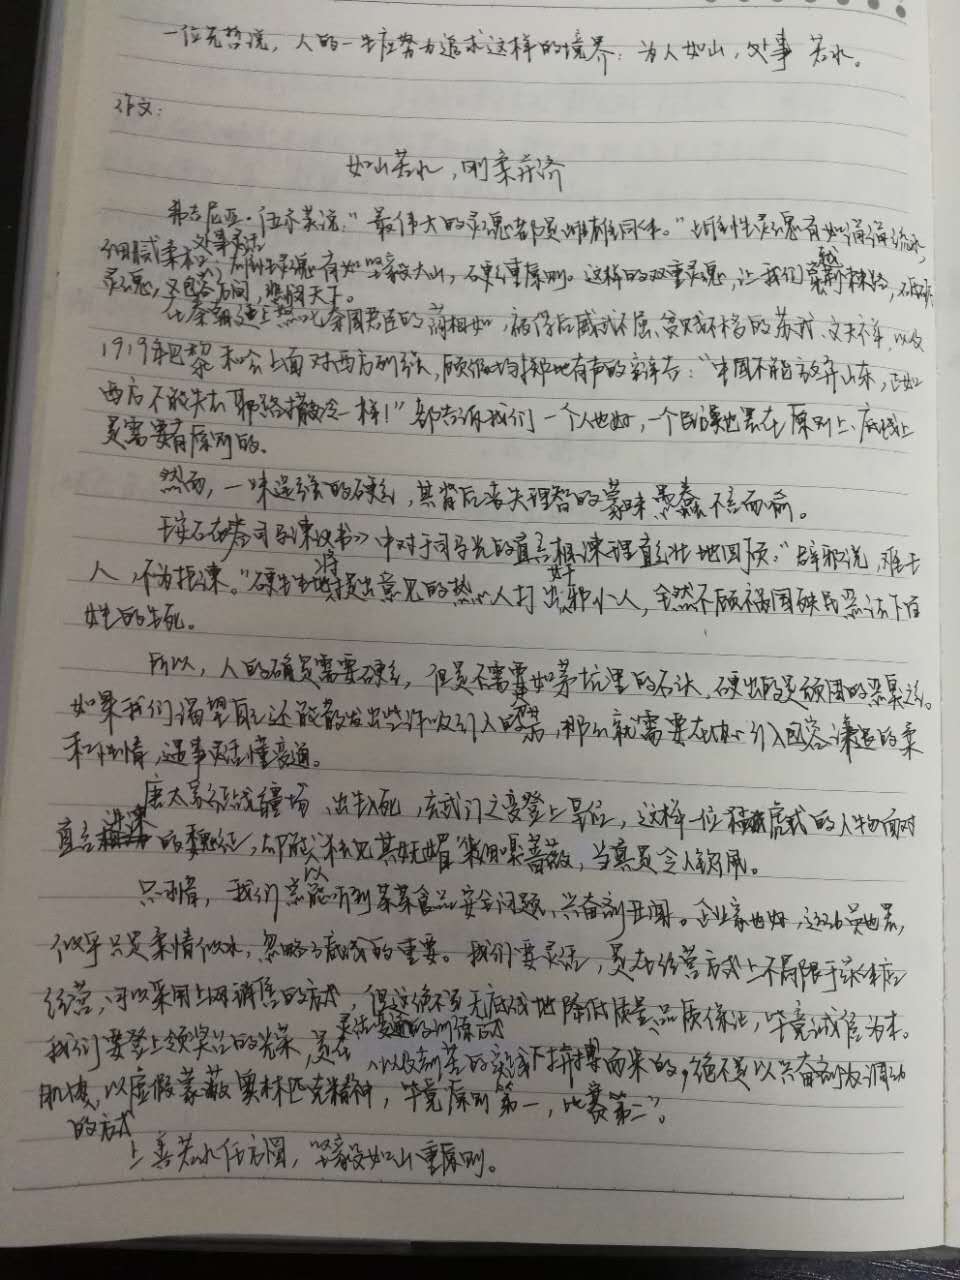 一位先哲说，人的一生应努力追求这样的境界：为人如山，处事 若水。
作文：
如山若水，刚柔并济
弗吉尼亚·伍尔芙说："最伟大的灵魂都是雌雄同体。"雌性灵魂有如涓涓流水，
细腻柔和，处事灵活 雄性灵魂有如坚毅大山，硬气重原则。这样的双重灵魂，让我们穿越荆棘路，
灵魂，又包容方圆，悲悯天下。
在秦朝廷上怒叱秦国君臣的蔺相如，被俘后威武不屈、贫贱不移的苏武、文天祥，以及
1919年巴黎和会上面对西方列强，顾维钧掷地有声的辩告："中国不能放弃山东，正如
西方不能失去耶路撒冷一样！"都告诉我们一个人也好，一个国家也罢在原则上、底线上
是需要有原则的。
然而，一味逞强的硬气，其背后丧失理智的蒙昧愚蠢不言而喻。
王安石在《答司马谏议书》中对于司马光的直言相谏理直气壮地回顶："辟邪说，难壬
人，不为拒谏。"硬生生地将提出意见的热心人打成奸邪小人，全然不顾祸国殃民 恶法下百
姓的生死。
所以，人的确是需要硬气，但是不需要如茅坑里的石头，硬出的是顽固的恶臭之气。
如果我们渴望自己还能散发出些许吸引人的 ，那么就需要在心引入包容谦逊的柔
和性情，遇事灵活懂变通。
唐太宗征战疆场、出生入死，玄武门之变登上皇位，这样一位 虎式的人物面对
直言进谏的魏征，却能 其妩媚 细嗅蔷薇，当真是令人钦佩。
只可惜，我们总能以听到某某食品安全问题、兴奋剂丑闻。企业家也好，运动员也罢，
似乎只是柔情似水，忽略了底线的重要。我们要灵活，是在经营方式上不局限于实体店
经营，可以采用上网销售的方式，但这绝不是无底线地降低质量品质保证，毕竟诚信为本。
我们要登上领奖台的光荣，是在灵活变通的训练方式以及刻苦的 下拼搏而来的，绝不是以兴奋剂 调动
肌体，以虚假蒙蔽奥林匹克精神，毕竟原则第一，比赛第二。
的方式
上善若水任方圆，坚毅如山重原则。